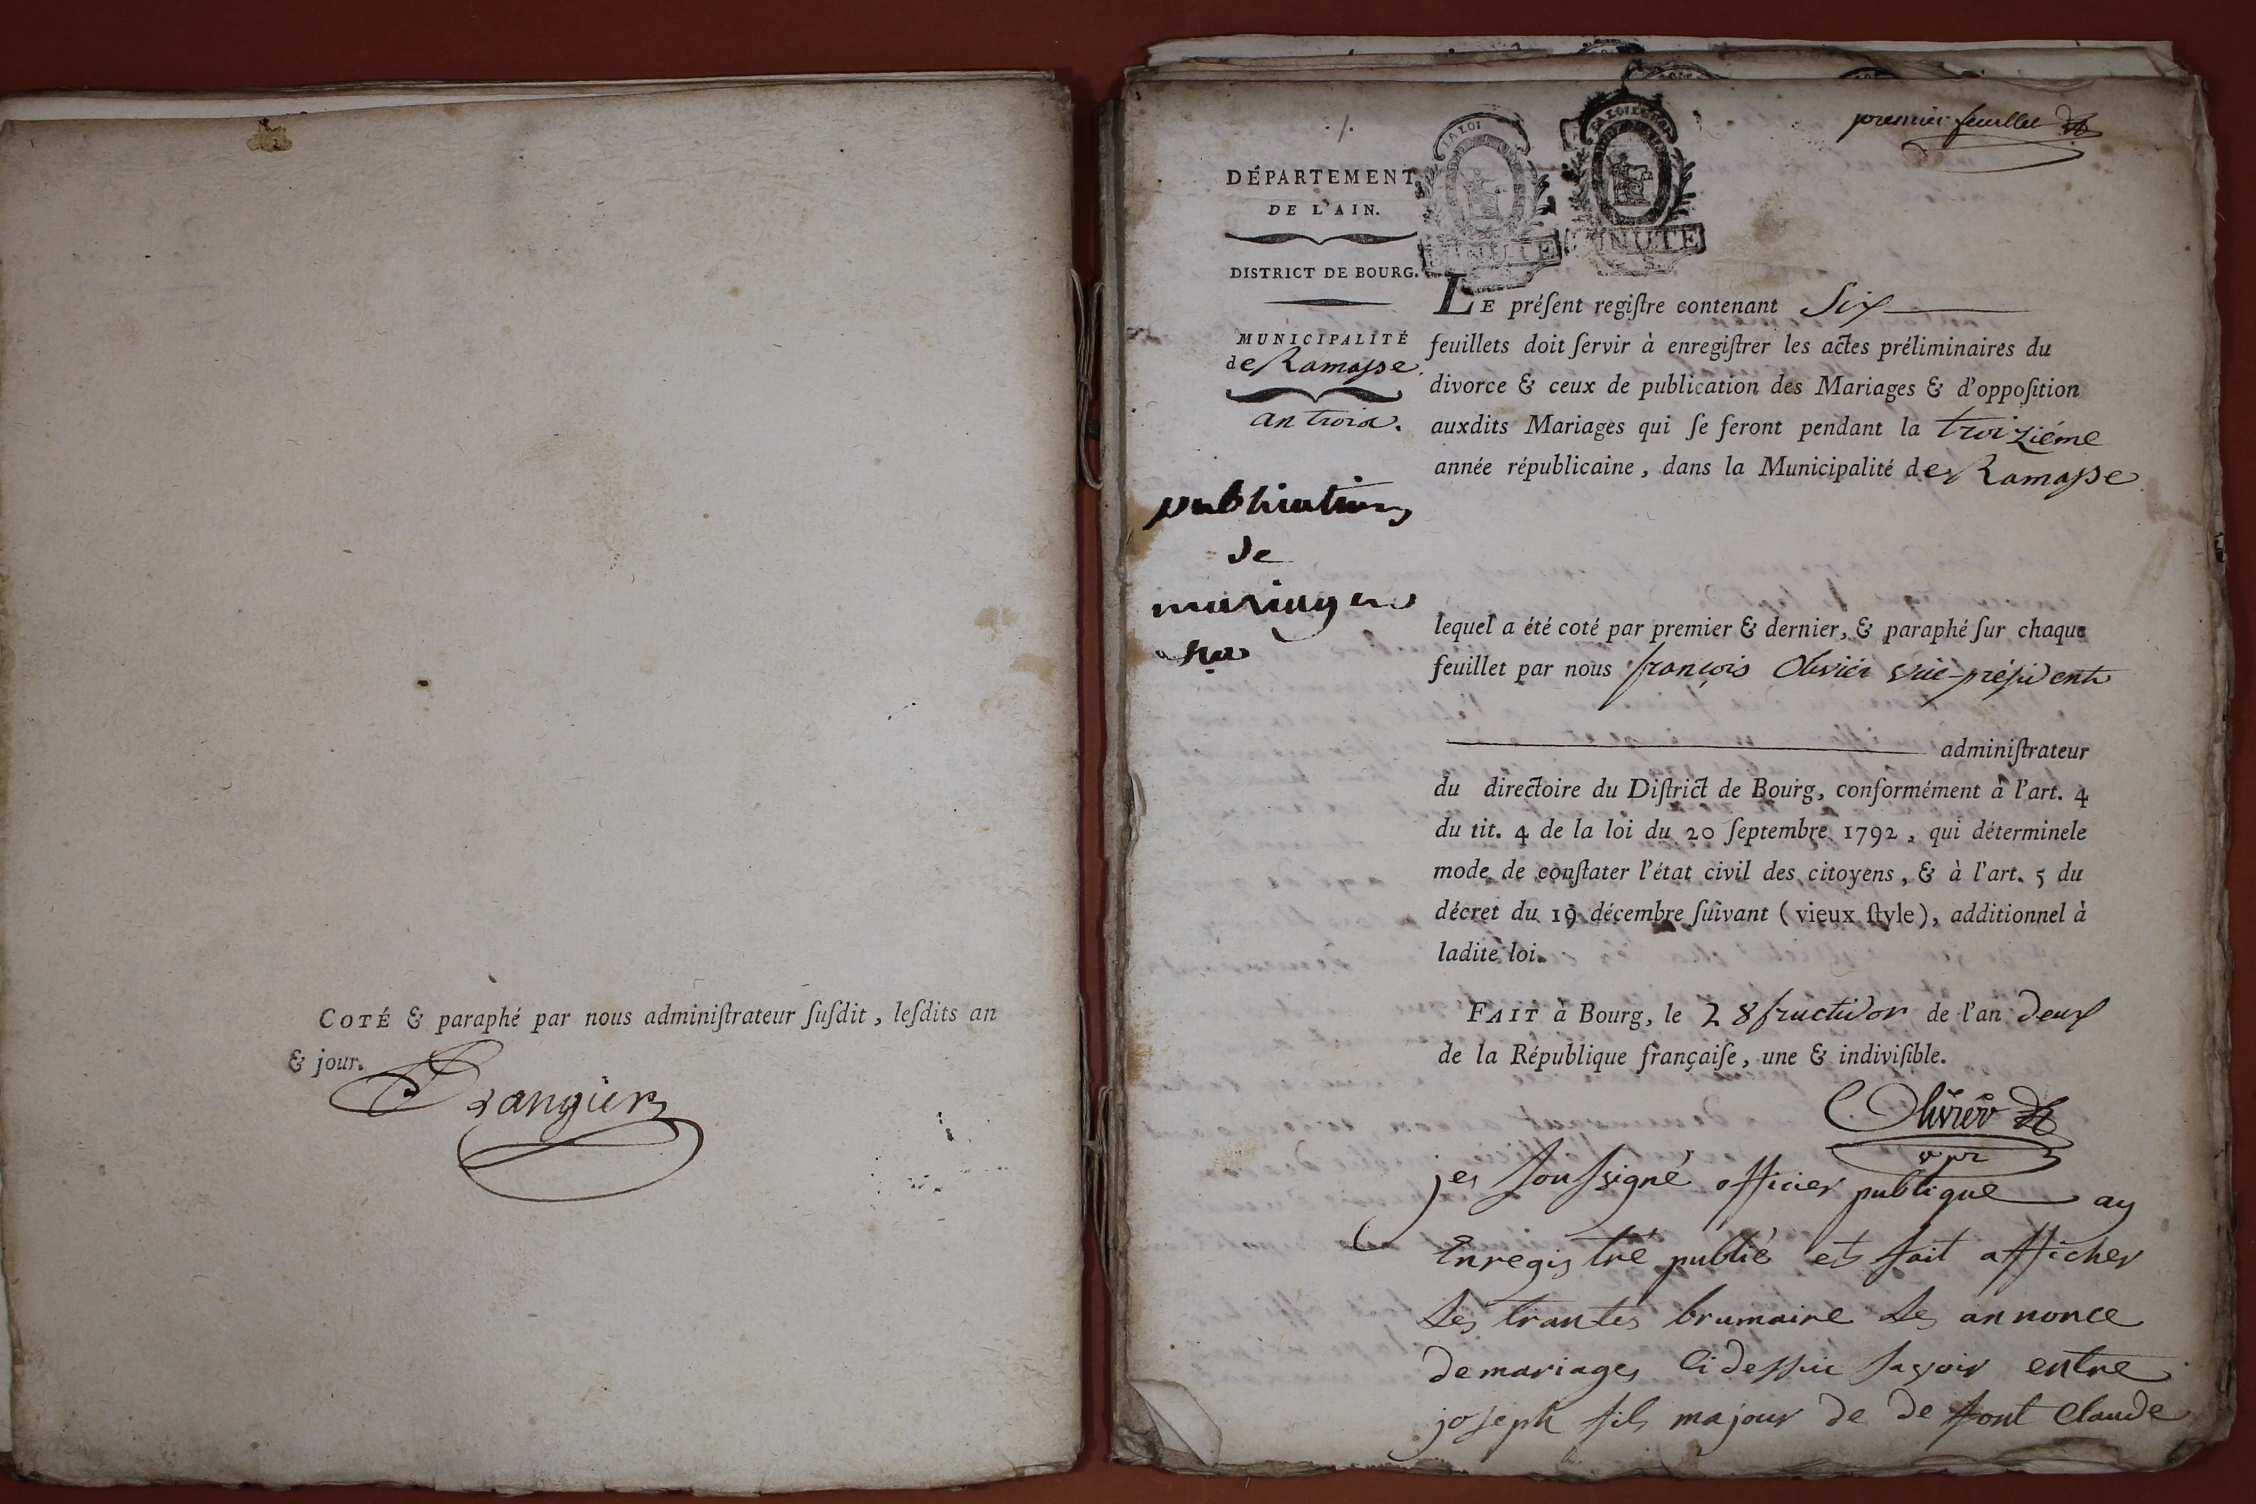 COTÉ & paraphé par nous adminiſtrateur ſuſdit, leſdits an
& jour.
premier feuillet
LA LOI
MINUTE
MINUTE
DÉPARTEMENT
DE L'AIN.
DISTRICT DE BOURG.
MUNICIPALITÉ
de Ramasse
an trois.
publications
de
mariages
LE préſent regiſtre contenant Six
feuillets doit ſervir à enregiſtrer les actes préliminaires du
divorce & ceux de publication des Mariages & d'oppoſition
auxdits Mariages qui ſe feront pendant la troiziéme
année républicaine, dans la Municipalité de Ramasse
lequel a été coté par premier & dernier, & paraphé ſur chaque
feuillet par nous françois Olivier vice-président
adminiſtrateur
du directoire du Diſtrict de Bourg, conformément à l'art. 4
du tit. 4 de la loi du 20 ſeptembre 1792, qui déterminele
mode de conſtater l'état civil des citoyens, & à l'art. 5 du
décret du 19 décembre ſuivant (vieux ſtyle), additionnel à
ladite loi.
FAIT à Bourg, le 28 fructidor de l'an deux
de la République françaiſe, une & indiviſible.
Olivier
v pr
je soussigné officier publique ay
Enregistré publié et fait afficher
les trantes brumaire les annonce
de mariages ci dessu savoir entre
joseph fils majour de de font Claude